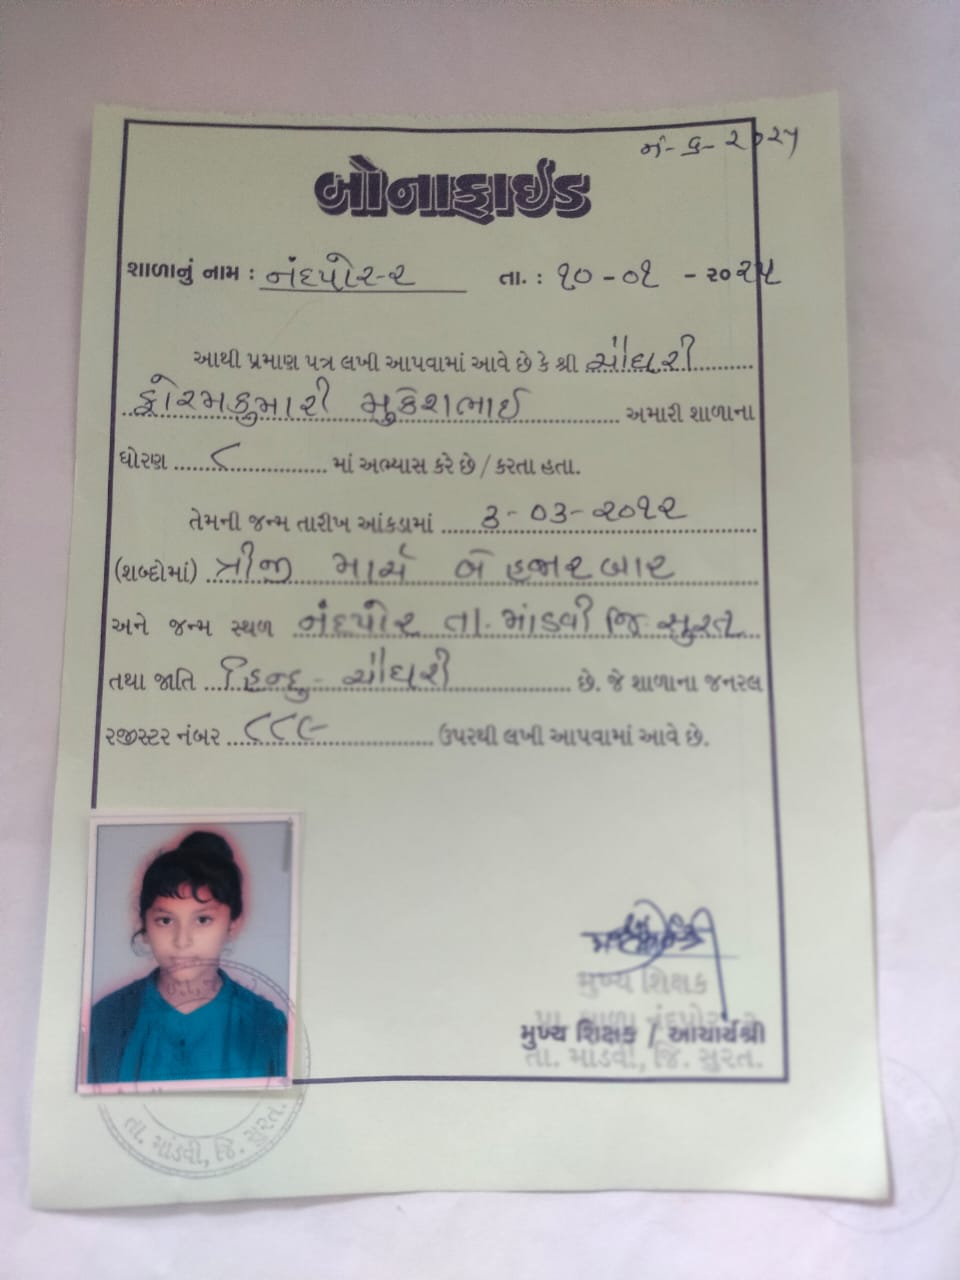 નં- ૬- ૨૦૨૫
બોનાફાઈડ
શાળાનું નામ : નંદપોર-૨ તા. : ૧૦-૦૧ - ૨૦૨૫
આથી પ્રમાણ પત્ર લખી આપવામાં આવે છે કે શ્રી ચૌધરી
ફોરમકુમારી મુકેશભાઈ અમારી શાળાના
ધોરણ ૮ માં અભ્યાસ કરે છે / કરતા હતા.
તેમની જન્મ તારીખ આંકડામાં ૩-૦૩-૨૦૧૨
(શબ્દોમાં) ત્રીજી માર્ચ બે હજાર બાર
અને જન્મ સ્થળ નંદપોર તા. માંડવી જિ. સુરત
તથા જાતિ હિન્દુ - ચૌધરી છે. જે શાળાના જનરલ
રજીસ્ટર નંબર ૮૮૯ ઉપરથી લખી આપવામાં આવે છે.
મુખ્ય શિક્ષક
મુખ્ય શિક્ષક / આચાર્યશ્રી
તા. માંડવી, જિ. સુરત.
તા. માંડવી, જિ. સુરત.